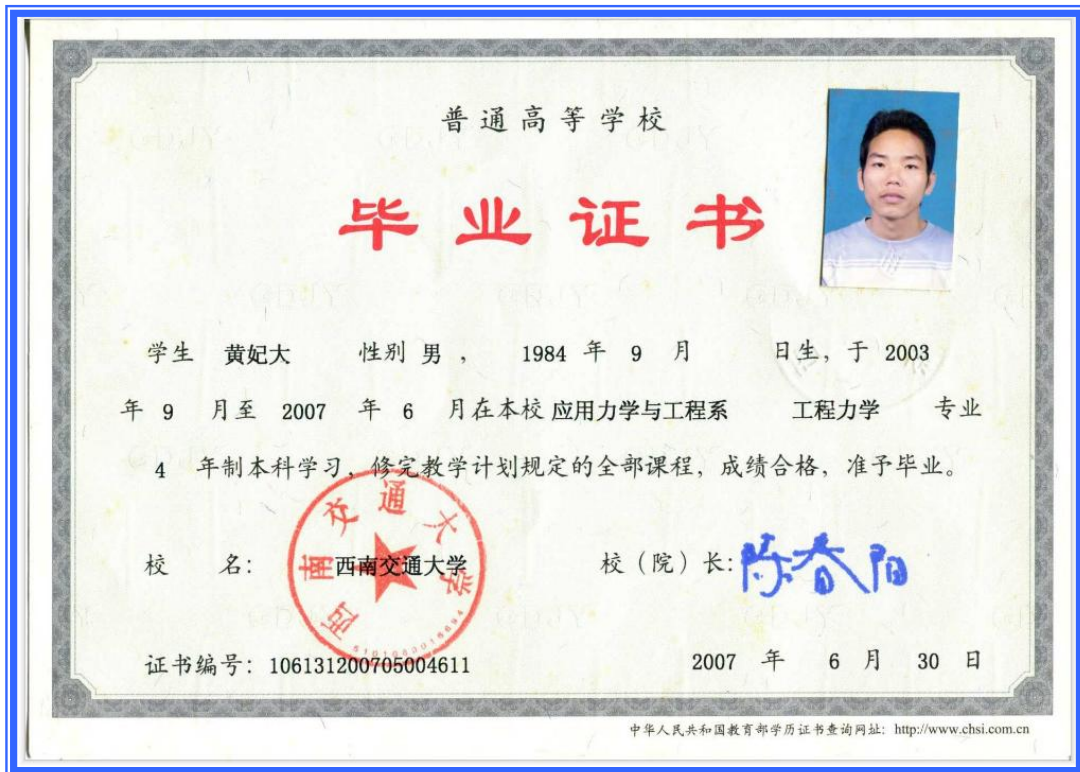 普通高等学校
毕业证书
学生 黄妃大 性别 男 , 1984 年 9 月 日生, 于 2003
年 9 月至 2007 年 6 月在本校 应用力学与工程系 工程力学 专业
4 年制本科学习, 修完教学计划规定的全部课程, 成绩合格, 准予毕业。
西南交通大学
校 名: 西南交通大学 校(院)长: 陈春阳
证书编号: 106131200705004611 2007 年 6 月 30 日
中华人民共和国教育部学历证书查询网址: http://www.chsi.com.cn